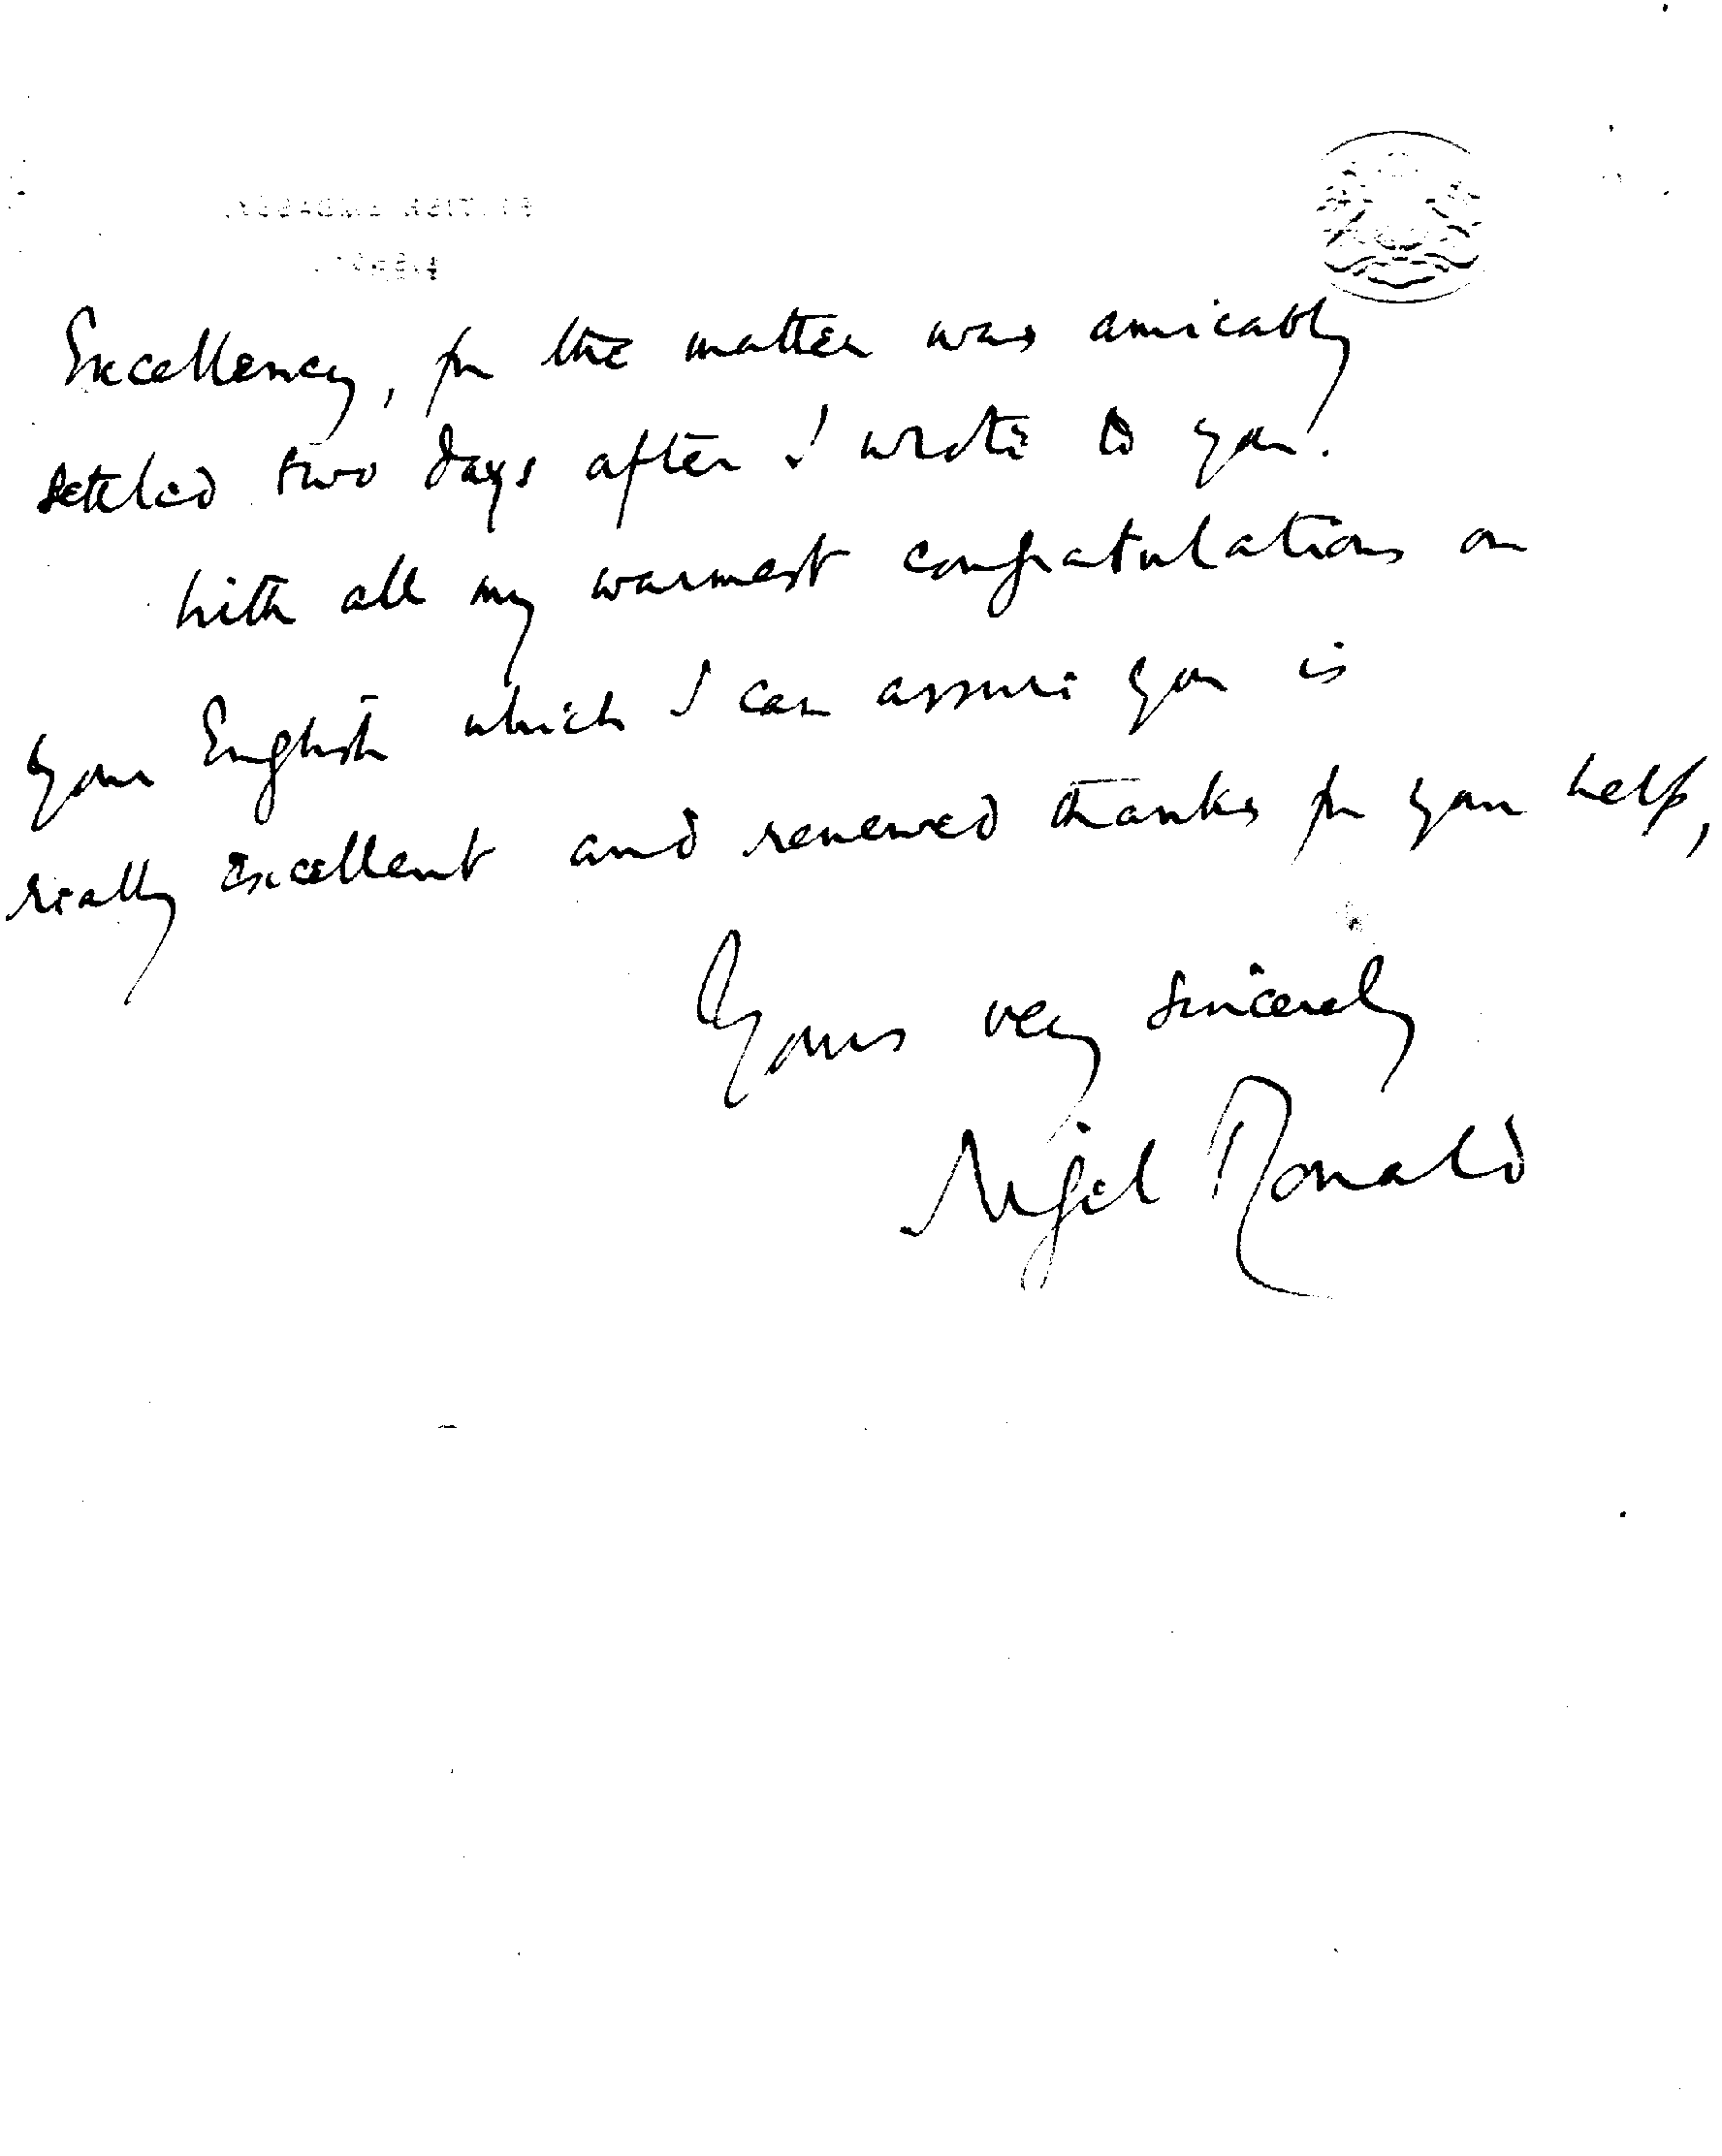 Excellency, for the matter was amicably
settled two days after I wrote to you.
With all my warmest congratulations on
your English which I can assure you is
really excellent and renewed thanks for your help,
Yours very sincerely
Nigel Ronald